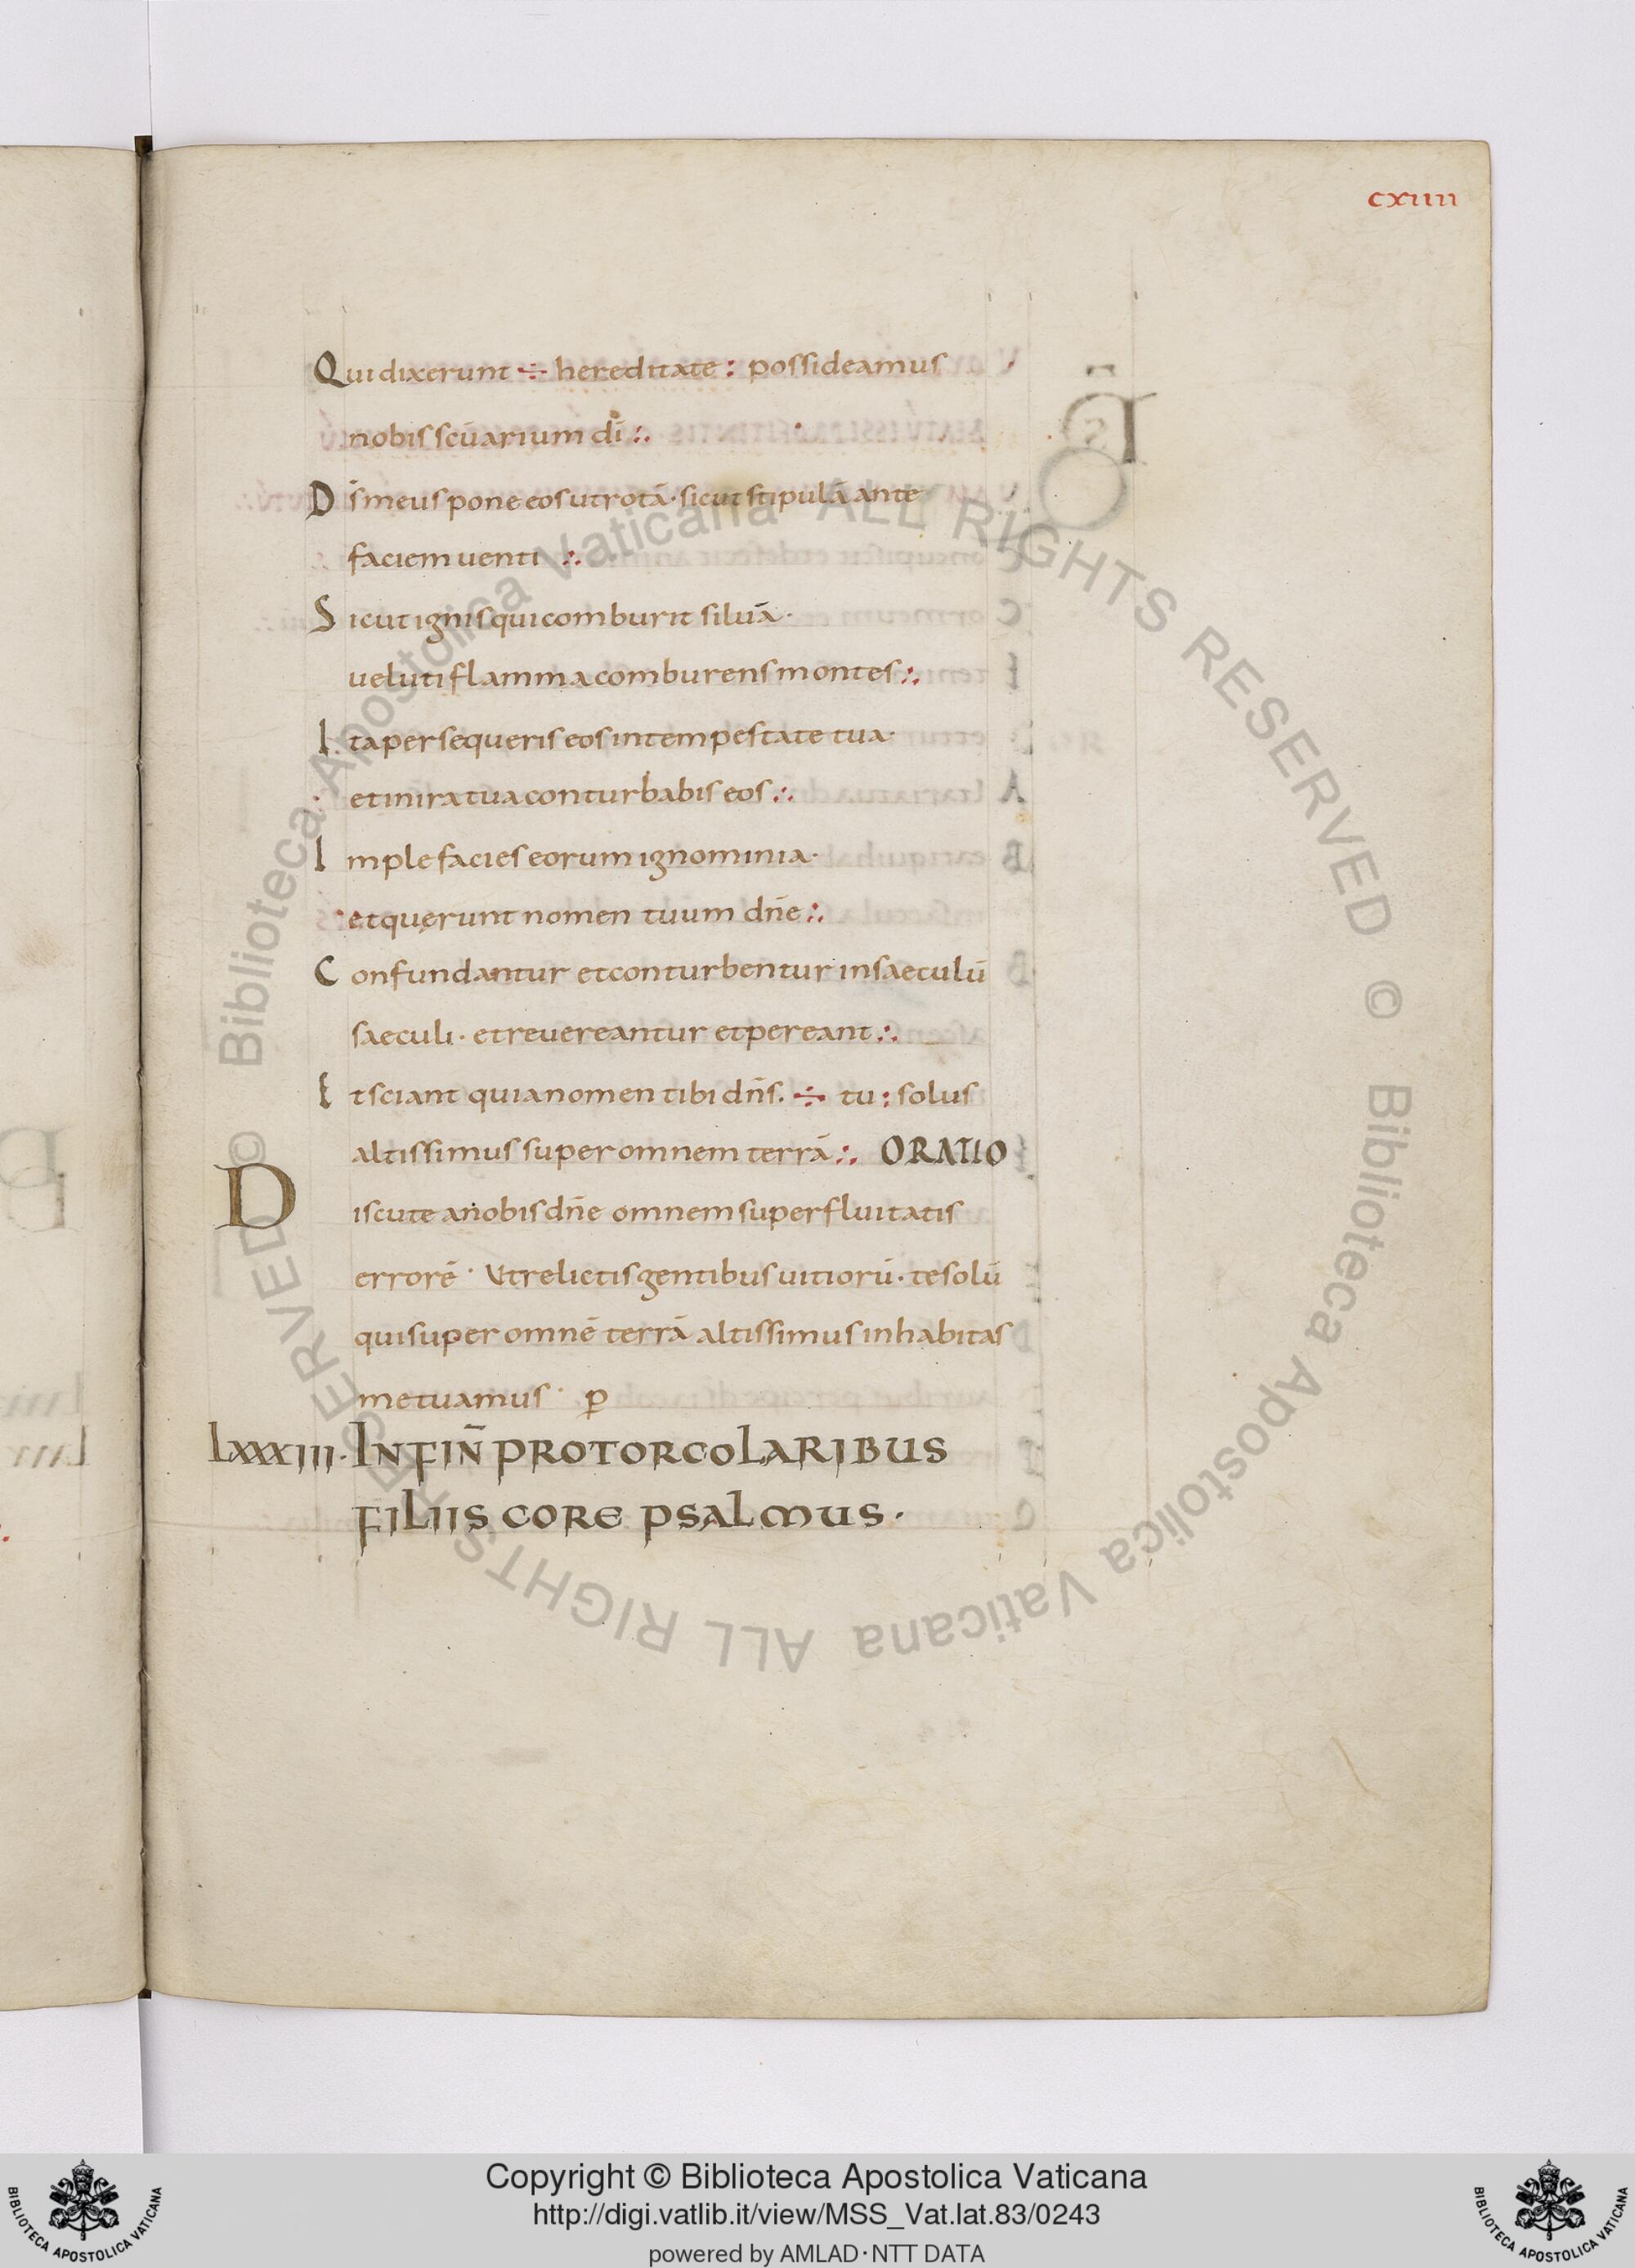 cxiiii
Qui dixerunt ÷ hereditate : possideamus
nobis scūarium dī :.
D s̄ meus pone eos ut rotā · sicut stipulā ante
faciem uenti :.
S icut ignis qui comburit siluā ·
ueluti flamma comburens montes :.
I ta persequeris eos in tempestate tua ·
et in ira tua conturbabis eos :.
I mple facies eorum ignominia ·
et quęrunt nomen tuum dn̄e :.
C onfundantur et conturbentur in saeculū
saeculi · et reuereantur et pereant :.
E t sciant quia nomen tibi dn̄s. ÷ tu : solus
altissimus super omnem terrā :. ORATIO
D iscute a nobis dn̄e omnem superfluitatis
errorē · Ut relictis gentibus uitiorū · te solū
qui super omnē terrā altissimus inhabitas
metuamus · ꝑ
LXXXIII · IN FIN̄ PRO TORCOLARIBUS
FILIIS CORE PSALMUS ·
© Biblioteca Apostolica Vaticana ALL RIGHTS RESERVED © Biblioteca Apostolica Vaticana ALL RIGHTS RESERVED
Copyright © Biblioteca Apostolica Vaticana
http://digi.vatlib.it/view/MSS_Vat.lat.83/0243
powered by AMLAD·NTT DATA
BIBLIOTECA APOSTOLICA VATICANA
BIBLIOTECA APOSTOLICA VATICANA